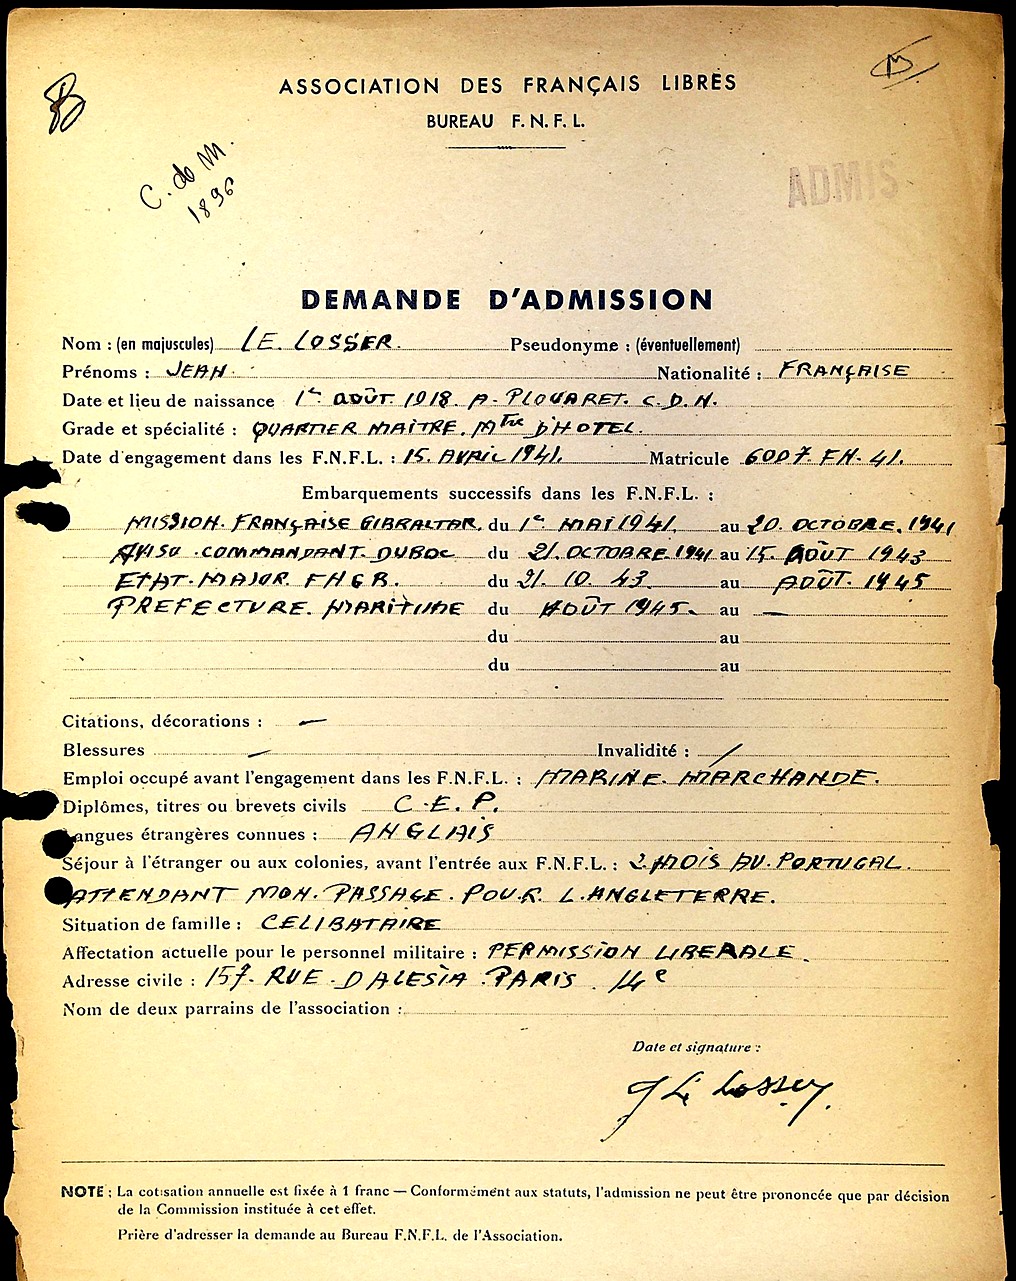 ASSOCIATION DES FRANÇAIS LIBRES
BUREAU F.N.F.L.
C. de M.
1896
ADMIS
DEMANDE D'ADMISSION
Nom : (en majuscules) LE. LOSSER. Pseudonyme : (éventuellement)
Prénoms : JEAN. Nationalité : FRANÇAISE
Date et lieu de naissance 1er AOÛT 1918. A. PLOUARET. C.D.N.
Grade et spécialité : QUARTIER MAITRE. Mtre D'HOTEL.
Date d'engagement dans les F.N.F.L. : 15. AVRIL 1941. Matricule 6007. FN. 41.
Embarquements successifs dans les F.N.F.L. :
MISSION. FRANÇAISE GIBRALTAR. du 1er MAI 1941. au 20. OCTOBRE. 1941
AVISO. COMMANDANT. DUBOC du 21. OCTOBRE. 1941 au 15. AOÛT 1943
ETAT. MAJOR. FNGB. du 21. 10. 43. au AOÛT. 1945
PREFECTURE. MARITIME du AOÛT 1945. au —
du au
du au
Citations, décorations : —
Blessures — Invalidité : /
Emploi occupé avant l'engagement dans les F.N.F.L. : MARINE. MARCHANDE.
Diplômes, titres ou brevets civils C.E.P.
Langues étrangères connues : ANGLAIS
Séjour à l'étranger ou aux colonies, avant l'entrée aux F.N.F.L. : 2. MOIS AU. PORTUGAL.
ATTENDANT MON. PASSAGE. POUR. L.ANGLETERRE.
Situation de famille : CELIBATAIRE
Affectation actuelle pour le personnel militaire : PERMISSION LIBERALE.
Adresse civile : 157. RUE. D ALESIA. PARIS. 14e
Nom de deux parrains de l'association :
Date et signature :
J Le Losser.
NOTE : La cotisation annuelle est fixée à 1 franc — Conformément aux statuts, l'admission ne peut être prononcée que par décision
de la Commission instituée à cet effet.
Prière d'adresser la demande au Bureau F.N.F.L. de l'Association.